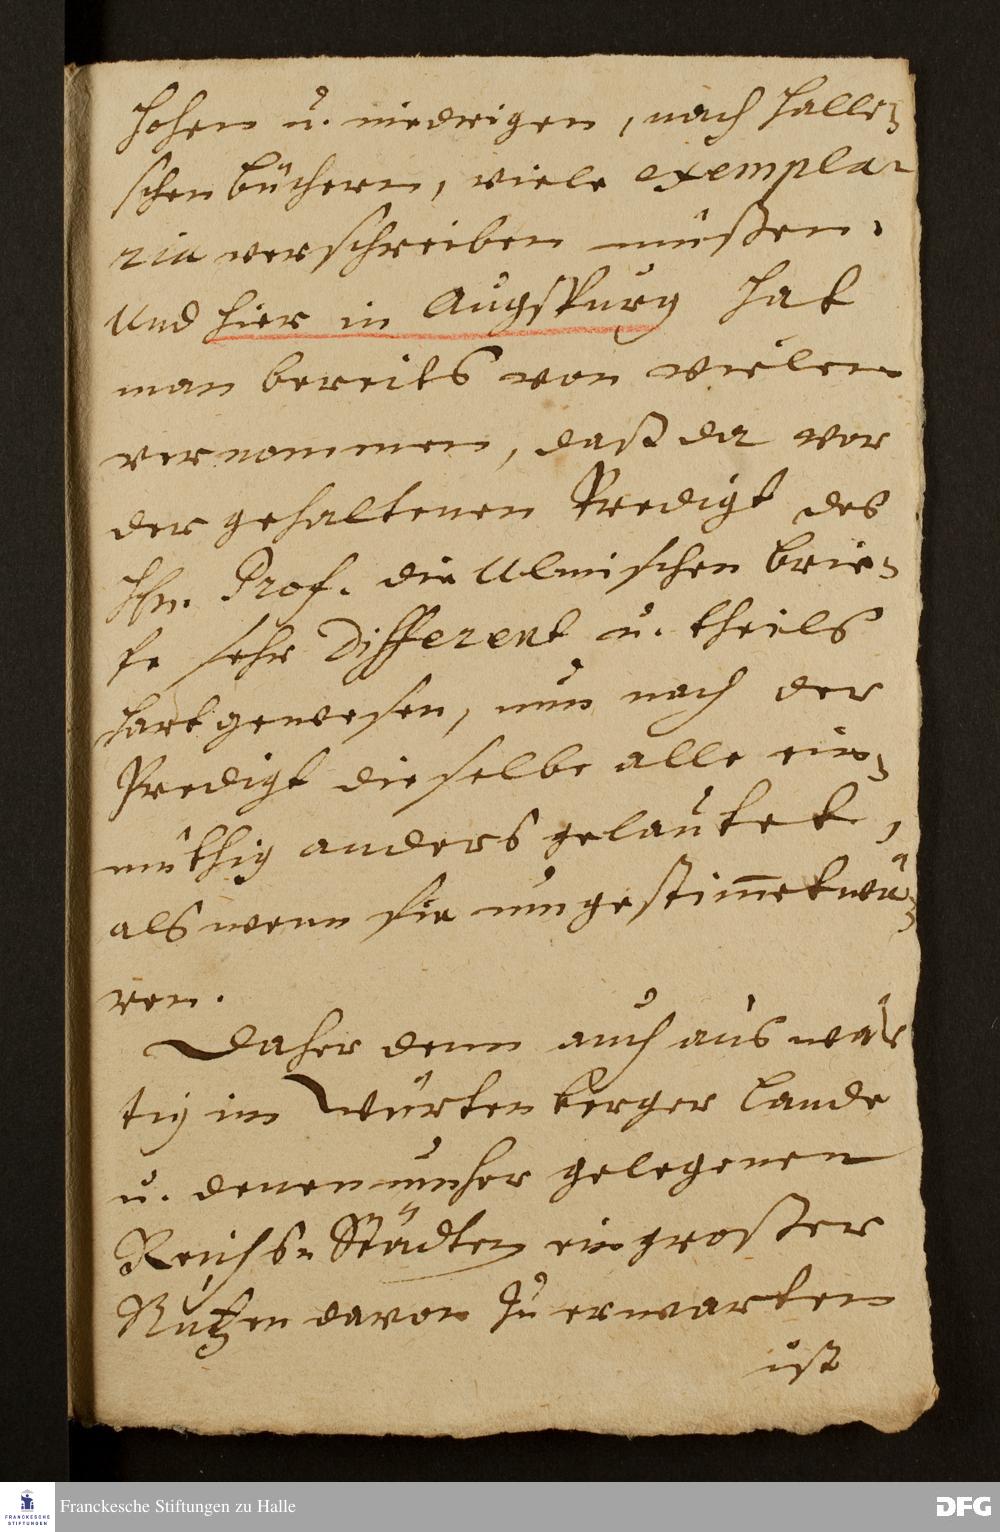 hohen u. niedrigen, nach Halle-
schen büchern, viele exempla-
ria verschreiben müßen.
Und hier in Augspurg hat
man bereits von vielen
vernommen, daß da vor
der gehaltenen Predigt des
Hn. Prof. die Ulmischen brie-
fe sehr different u. theils
hart gewesen, nun nach der
Predigt dieselbe alle ein-
müthig anders gelautet,
als wenn sie umgestim̅et wä-
ren.
Daher denn auch auswär
tig im Würtenberger Lande
u. denen umher gelegenen
Reichs-Städten ein großer
Nutzen davon zu erwarten
ist
Franckesche Stiftungen zu Halle
FRANCKESCHE
STIFTUNGEN
DFG